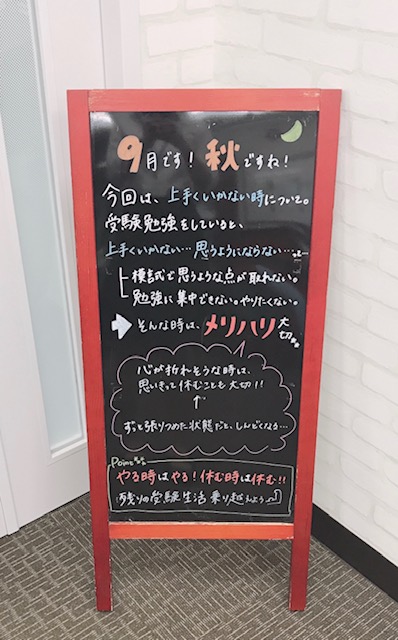 9月です! 秋ですね!
今回は、上手くいかない時について。
受験勉強をしていると、
上手くいかない…思うようにならない…。
模試で思うような点が取れない。
勉強に集中できない。やりたくない。
そんな時は、メリハリ大切
心が折れそうな時は、
思いきって休むことも大切!!
↑
ずっと張りつめた状態だと、しんどくなる…
Point
やる時はやる!休む時は休む!!
残りの受験生活乗り越えよう